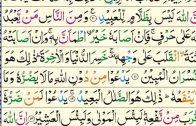 ٱللَّهَ لَيْسَ بِظَلَّٰمٍ لِّلْعَبِيدِ وَمِنَ ٱلنَّاسِ مَن يَعْبُدُ
ٱللَّهَ عَلَىٰ حَرْفٍ فَإِنْ أَصَابَهُۥ خَيْرٌ ٱطْمَأَنَّ بِهِۦ وَإِنْ أَصَابَتْهُ
فِتْنَةٌ ٱنقَلَبَ عَلَىٰ وَجْهِهِۦ خَسِرَ ٱلدُّنْيَا وَٱلْءَاخِرَةَ ذَٰلِكَ هُوَ
ٱلْخُسْرَانُ ٱلْمُبِينُ يَدْعُوا۟ مِن دُونِ ٱللَّهِ مَا لَا يَضُرُّهُۥ وَمَا
لَا يَنفَعُهُۥ ذَٰلِكَ هُوَ ٱلضَّلَٰلُ ٱلْبَعِيدُ يَدْعُوا۟ لَمَن ضَرُّهُۥٓ
أَقْرَبُ مِن نَّفْعِهِۦ لَبِئْسَ ٱلْمَوْلَىٰ وَلَبِئْسَ ٱلْعَشِيرُ إِنَّ ٱللَّهَ